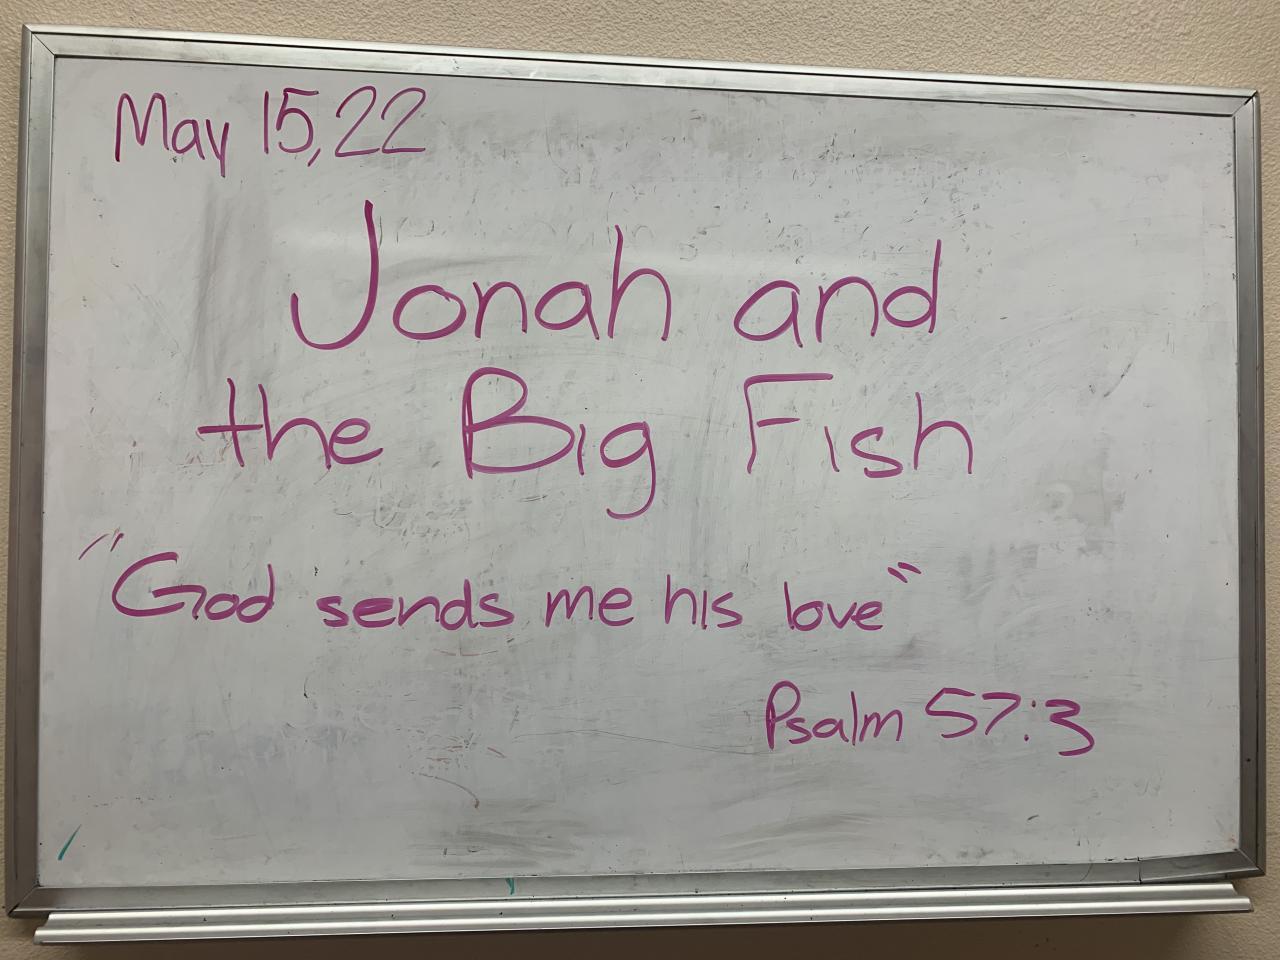 May 15,22
Jonah and
the Big Fish
"God sends me his love"
Psalm 57:3